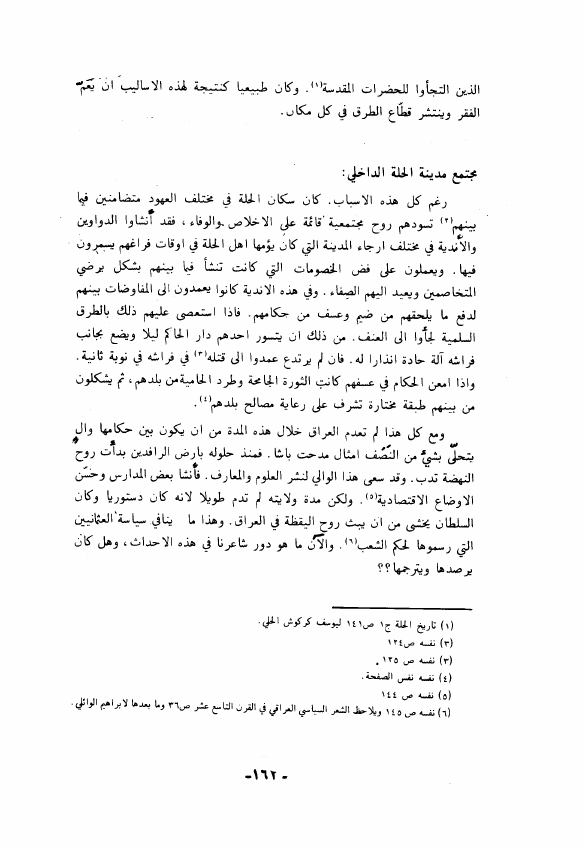 الذين التجأوا للحضرات المقدسة(١). وكان طبيعيا كنتيجة لهذه الاساليب ان يَعَمّ
الفقر وينتشر قطّاع الطرق في كل مكان.
مجتمع مدينة الحلة الداخلي:
رغم كل هذه الاسباب. كان سكان الحلة في مختلف العهود متضامنين فيما
بينهم(٢) تسودهم روح مجتمعية قائمة على الاخلاص والوفاء، فقد أنشاوا الدواوين
والأندية في مختلف ارجاء المدينة التي كان يؤمها اهل الحلة في اوقات فراغهم يسمرون
فيها. ويعملون على فض الخصومات التي كانت تنشأ فيا بينهم بشكل يرضي
المتخاصمين ويعيد اليهم الصفاء. وفي هذه الاندية كانوا يعمدون الى المفاوضات بينهم
لدفع ما يلحقهم من ضيم وعسف من حكامهم. فاذا استعصى عليهم ذلك بالطرق
السلمية لجأوا الى العنف. من ذلك ان يتسور احدهم دار الحاكم ليلا ويضع بجانب
فراشه آلة حادة انذارا له. فان لم يرتدع عمدوا الى قتله(٣) في فراشه في نوبة ثانية.
واذا امعن الحكام في عسفهم كانت الثورة الجامحة وطرد الحامية من بلدهم، ثم يشكلون
من بينهم طبقة مختارة تشرف على رعاية مصالح بلدهم(٤).
ومع كل هذا لم تعدم العراق خلال هذه المدة من ان يكون بين حكامها والٍ
يتحلّى بشيء من النَّصَف امثال مدحت باشا. فمنذ حلوله بارض الرافدين بدأت روح
النهضة تدب. وقد سعى هذا الوالي لنشر العلوم والمعارف. فأنشا بعض المدارس وحسّن
الاوضاع الاقتصادية(٥). ولكن مدة ولايته لم تدم طويلا لانه كان دستوريا وكان
السلطان يخشى من ان يبث روح اليقظة في العراق. وهذا ما ينافي سياسة العثمانيين
التي رسموها لحكم الشعب(٦). والآن ما هو دور شاعرنا في هذه الاحداث، وهل كان
يرصدها ويترجمها؟؟
(١) تاريخ الحلة ج١ ص١٤١ ليوسف كركوش الحلي.
(٣) نفسه ص١٢٤
(٣) نفسه ص ١٢٥.
(٤) نفسه نفس الصفحة.
(٥) نفسه ص ١٤٤
(٦) نفسه ص ١٤٥ ويلاحظ الشعر السياسي العراقي في القرن التاسع عشر ص٣٦ وما بعدها لابراهيم الوائلي.
-١٦٢-